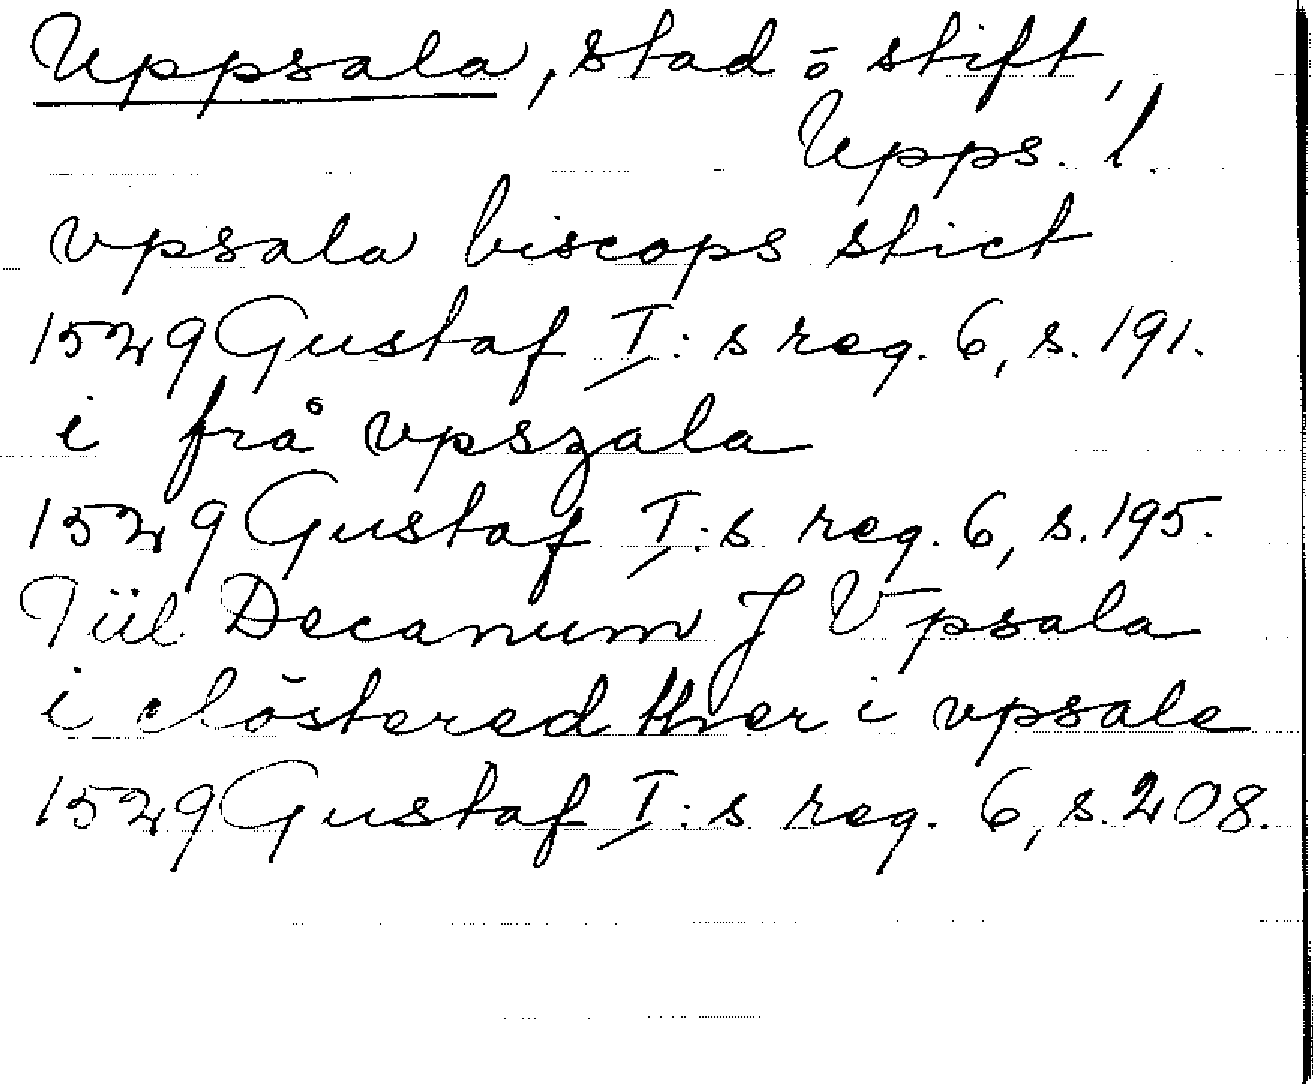 Uppsala, stad o stift,
Upps. l.
vpsala biscops stict
1529 Gustaf I:s reg. 6, s. 191.
i frå vpszala
1529 Gustaf I:s reg. 6, s. 195.
Tiil Decanum J Vpsala
i clöstered ther i vpsale
1529 Gustaf I:s reg. 6, s. 208.